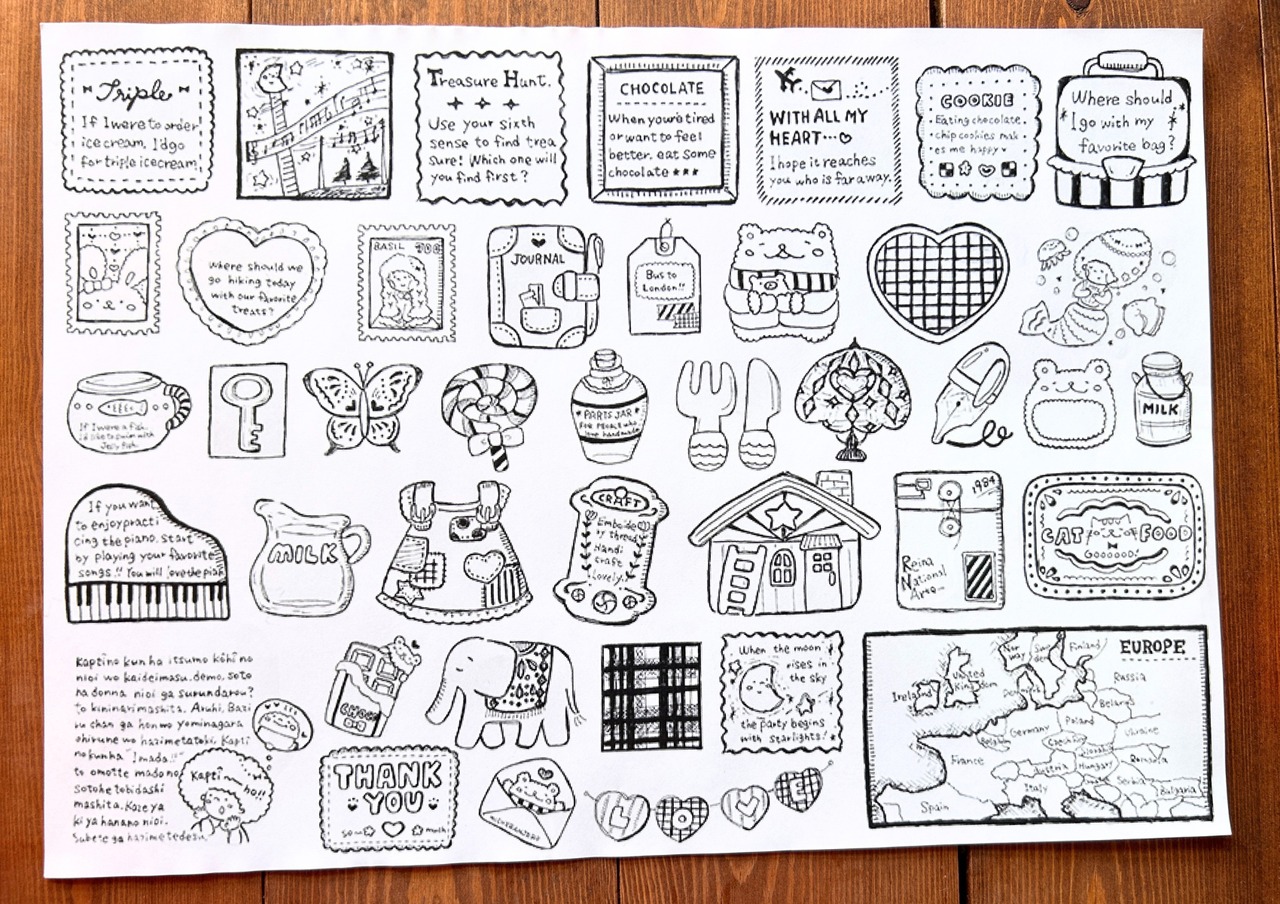 Triple
If I were to order
ice cream, I'd go
for triple icecream!
Treasure Hunt.
Use your sixth
sense to find trea
sure! Which one will
you find first?
CHOCOLATE
When you're tired
or want to feel
better. eat some
chocolate
WITH ALL MY
HEART...
I hope it reaches
you who is far away.
COOKIE
Eating chocolate
chip cookies mak
es me happy
Where should
I go with my
favorite bag?
Where should we
go hiking today
with our favorite
treats?
BASIL
JOURNAL
Bus to
London!!
If I were a fish,
I'd like to swim with
Jelly fish.
PARTS JAR
FOR PEOPLE who
love handmade
MILK
If you want
to enjoy practi
cing the piano. Start
by playing your favorite
songs!! You will love the pian
MILK
CRAFT
Embroide
by thread
Handi
craft
Lovely..
1984
Reina
National
CAT FOOD
GOOOOOD!
Kaptino kun ha itsumo kōhī no
nioi wo kaideimasu. demo, soto
ha donna nioi ga surundarou?
to kininarimashita. Aruhi, Bazi
ru chan ga hon wo yominagara
ohirune wo hazimetatoki, Kapti
no kun ha "Imada!!"
to omotte mado no
soto he tobidashi
mashita. Kaze ya
ki ya hana no nioi.
Subete ga hazimetedesu.
Kapti
ho!!
CHOCO
THANK
YOU
so~ much!
When the moon
rises in
the sky
the party begins
with starlights!
LOVE
EUROPE
Nor
way
Swe
den
Finland
Russia
Ireland
United
Kingdom
Belarus
Poland
Germany
Ukraine
France
Austria
Hungary
Serbia
Italy
Bulgaria
Spain